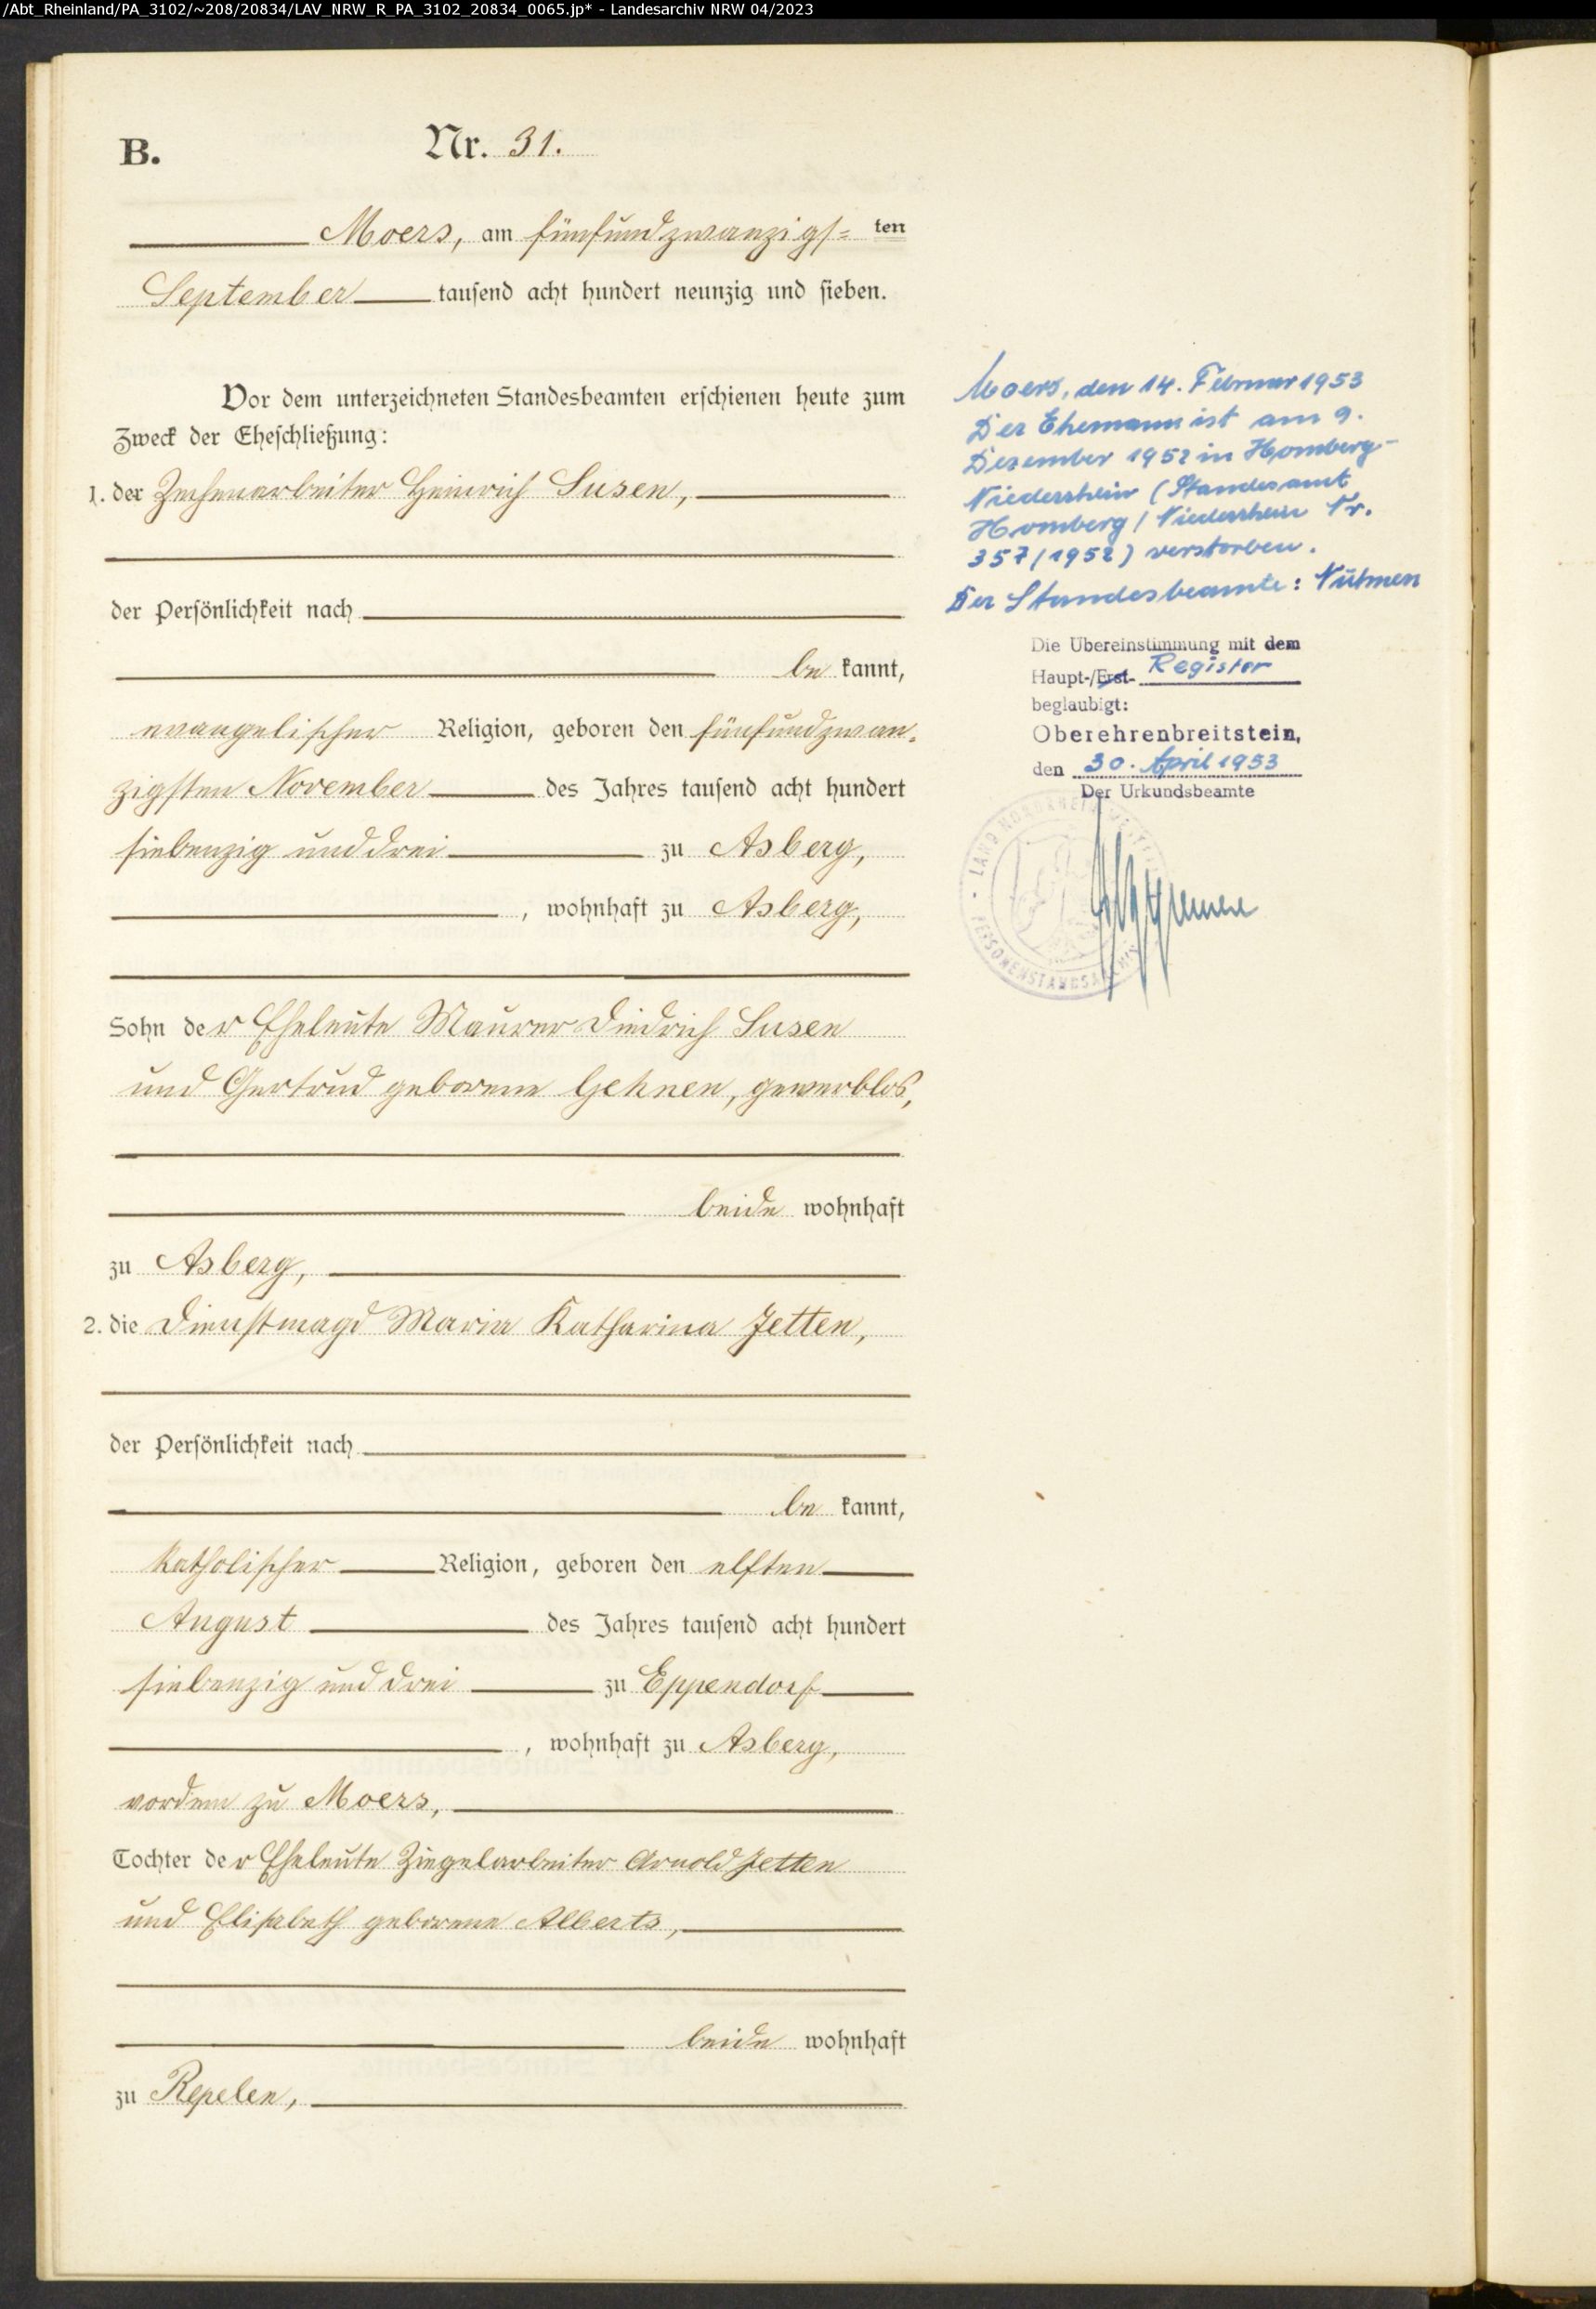 /Abt_Rheinland/PA_3102/~208/20834/LAV_NRW_R_PA_3102_20834_0065.jp* - Landesarchiv NRW 04/2023
B.
Nr. 31.
Moers, am fünfundzwanzigs= ten
September tausend acht hundert neunzig und sieben.
Vor dem unterzeichneten Standesbeamten erschienen heute zum
Zweck der Eheschließung:
1. der Zechenarbeiter Heinrich Susen,
der Persönlichkeit nach
be kannt,
evangelischer Religion, geboren den fünfundzwan-
zigsten November des Jahres tausend acht hundert
siebenzig und drei zu Asberg,
, wohnhaft zu Asberg,
Sohn der Eheleute Maurer Diedrich Susen
und Gertrud geborene Gehnen, gewerblos,
beide wohnhaft
zu Asberg,
2. die Dienstmagd Maria Katharina Jetten,
der Persönlichkeit nach
be kannt,
katholischer Religion, geboren den elften
August des Jahres tausend acht hundert
siebenzig und drei zu Eppendorf
, wohnhaft zu Asberg,
vordem zu Moers,
Tochter der Eheleute Ziegelarbeiter Arnold Jetten
und Elisabeth geborene Alberts,
beide wohnhaft
zu Repelen,
Moers, den 14. Februar 1953
Der Ehemann ist am 9.
Dezember 1952 in Homberg-
Niederrhein (Standesamt
Homberg/Niederrhein Nr.
357/1952) verstorben.
Der Standesbeamte: Nühnen
Die Übereinstimmung mit dem
Haupt-/Erst- Register
beglaubigt:
Oberehrenbreitstein,
den 30. April 1953
Der Urkundsbeamte
LAND NORDRHEIN-WESTFALEN
PERSONENSTANDSARCHIV